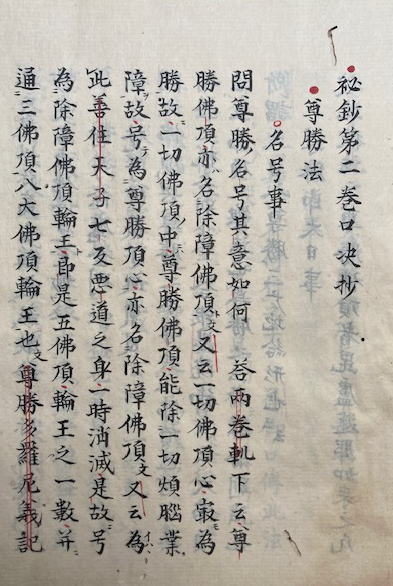 祕鈔第二卷口決抄
尊勝法
名号事
問尊勝名号其意如何 荅兩卷軌下云尊
勝佛頂亦名除障佛頂文又云一切佛頂心㝡為
勝故一切佛頂中尊勝佛頂能除一切煩腦業
障故号為尊勝頂心亦名除障佛頂文又云為
此善住天子七反悪道之身一時消滅是故号
為除障佛頂輪王即是五佛頂輪王之一數并
通三佛頂八大佛頂輪王也文尊勝多羅尼義記